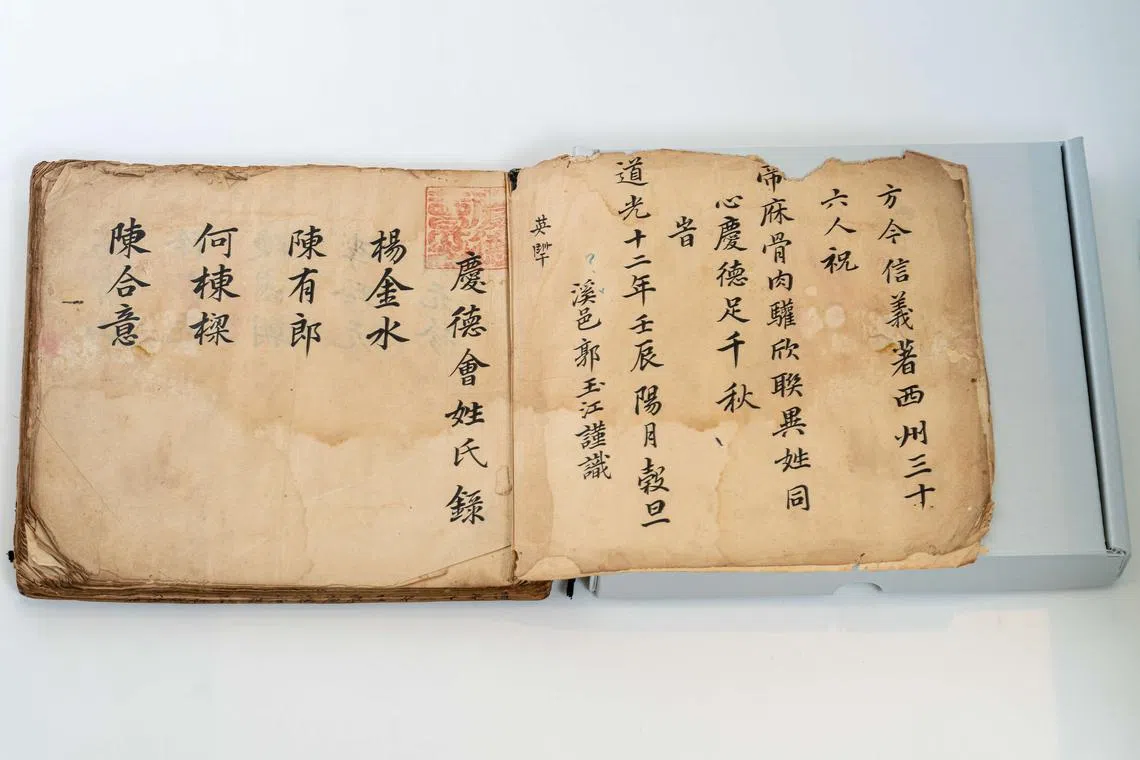 方今信義著西州三十
六人祝
帝庥骨肉驩欣聯異姓同
心慶德足千秋
旹
道光十二年壬辰陽月穀旦
溪邑郭玉江謹識
英
慶德會姓氏錄
楊金水
陳有郎
何棟樑
陳合意